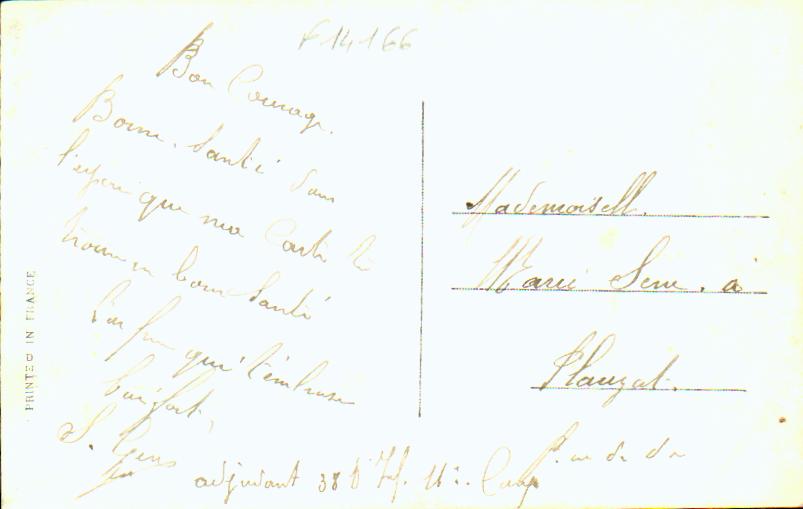 F 14166
Bon Courage.
Bonne Santé dans
l'espoir que ma Carte te
trouve en bonne Santé
Ton qui t'embrasse
bien fort,
S.
adjudant 38e Inf. 11e. Comp
PRINTED IN FRANCE
Mademoiselle.
Marie Serre. à
Plauzat.
P. de d